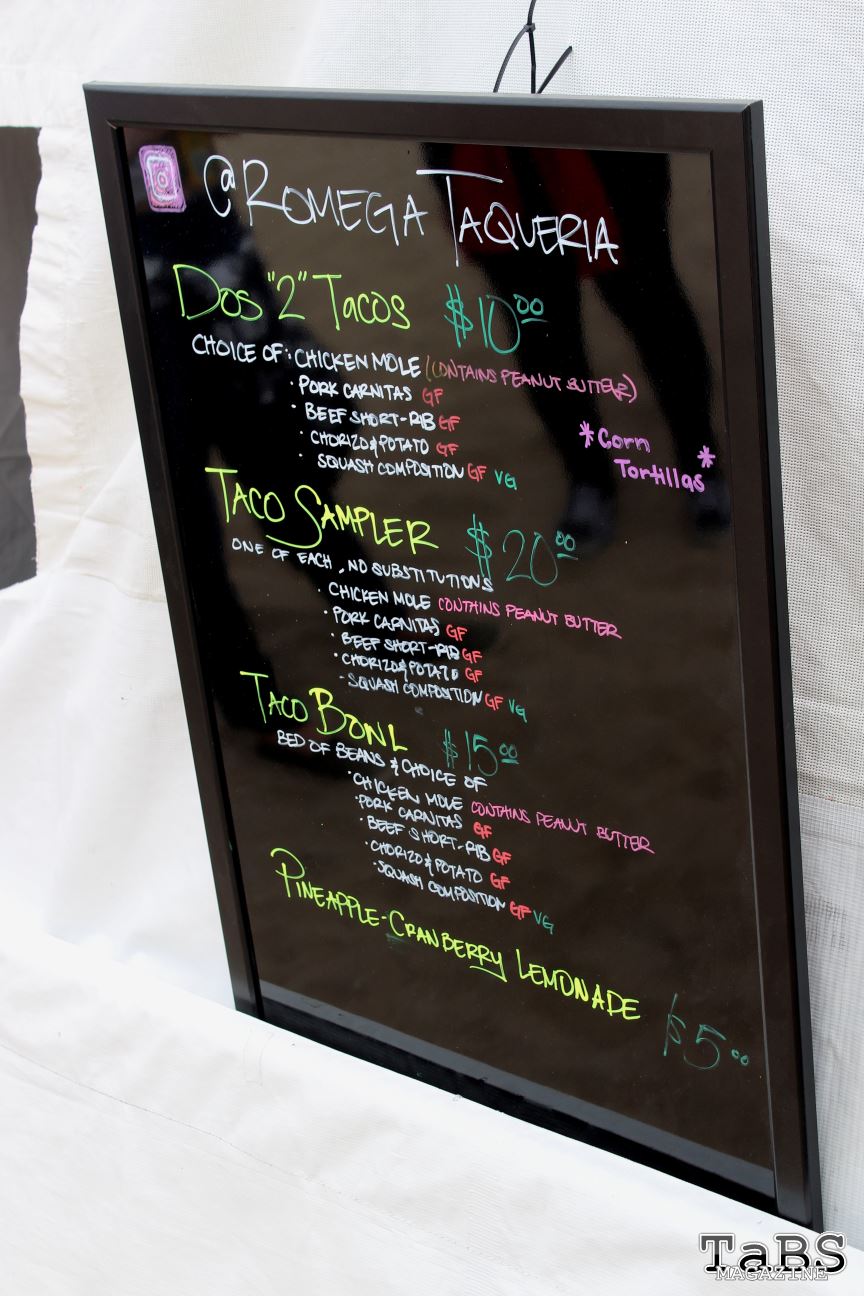 @ROMEGA TAQUERIA
DOS "2" TACOS $10.00
CHOICE OF: CHICKEN MOLE (CONTAINS PEANUT BUTTER)
· PORK CARNITAS GF
· BEEF SHORT-RIB GF
· CHORIZO & POTATO GF
· SQUASH COMPOSITION GF VG
*Corn
Tortillas*
TACO SAMPLER $20.00
ONE OF EACH, NO SUBSTITUTIONS
· CHICKEN MOLE CONTAINS PEANUT BUTTER
· PORK CARNITAS GF
· BEEF SHORT-RIB GF
· CHORIZO & POTATO GF
- SQUASH COMPOSITION GF VG
TACO BOWL $15.00
BED OF BEANS & CHOICE OF
· CHICKEN MOLE CONTAINS PEANUT BUTTER
· PORK CARNITAS GF
· BEEF SHORT-RIB GF
· CHORIZO & POTATO GF
· SQUASH COMPOSITION GF VG
PINEAPPLE-CRANBERRY LEMONADE $5.00
TaBS
MAGAZINE